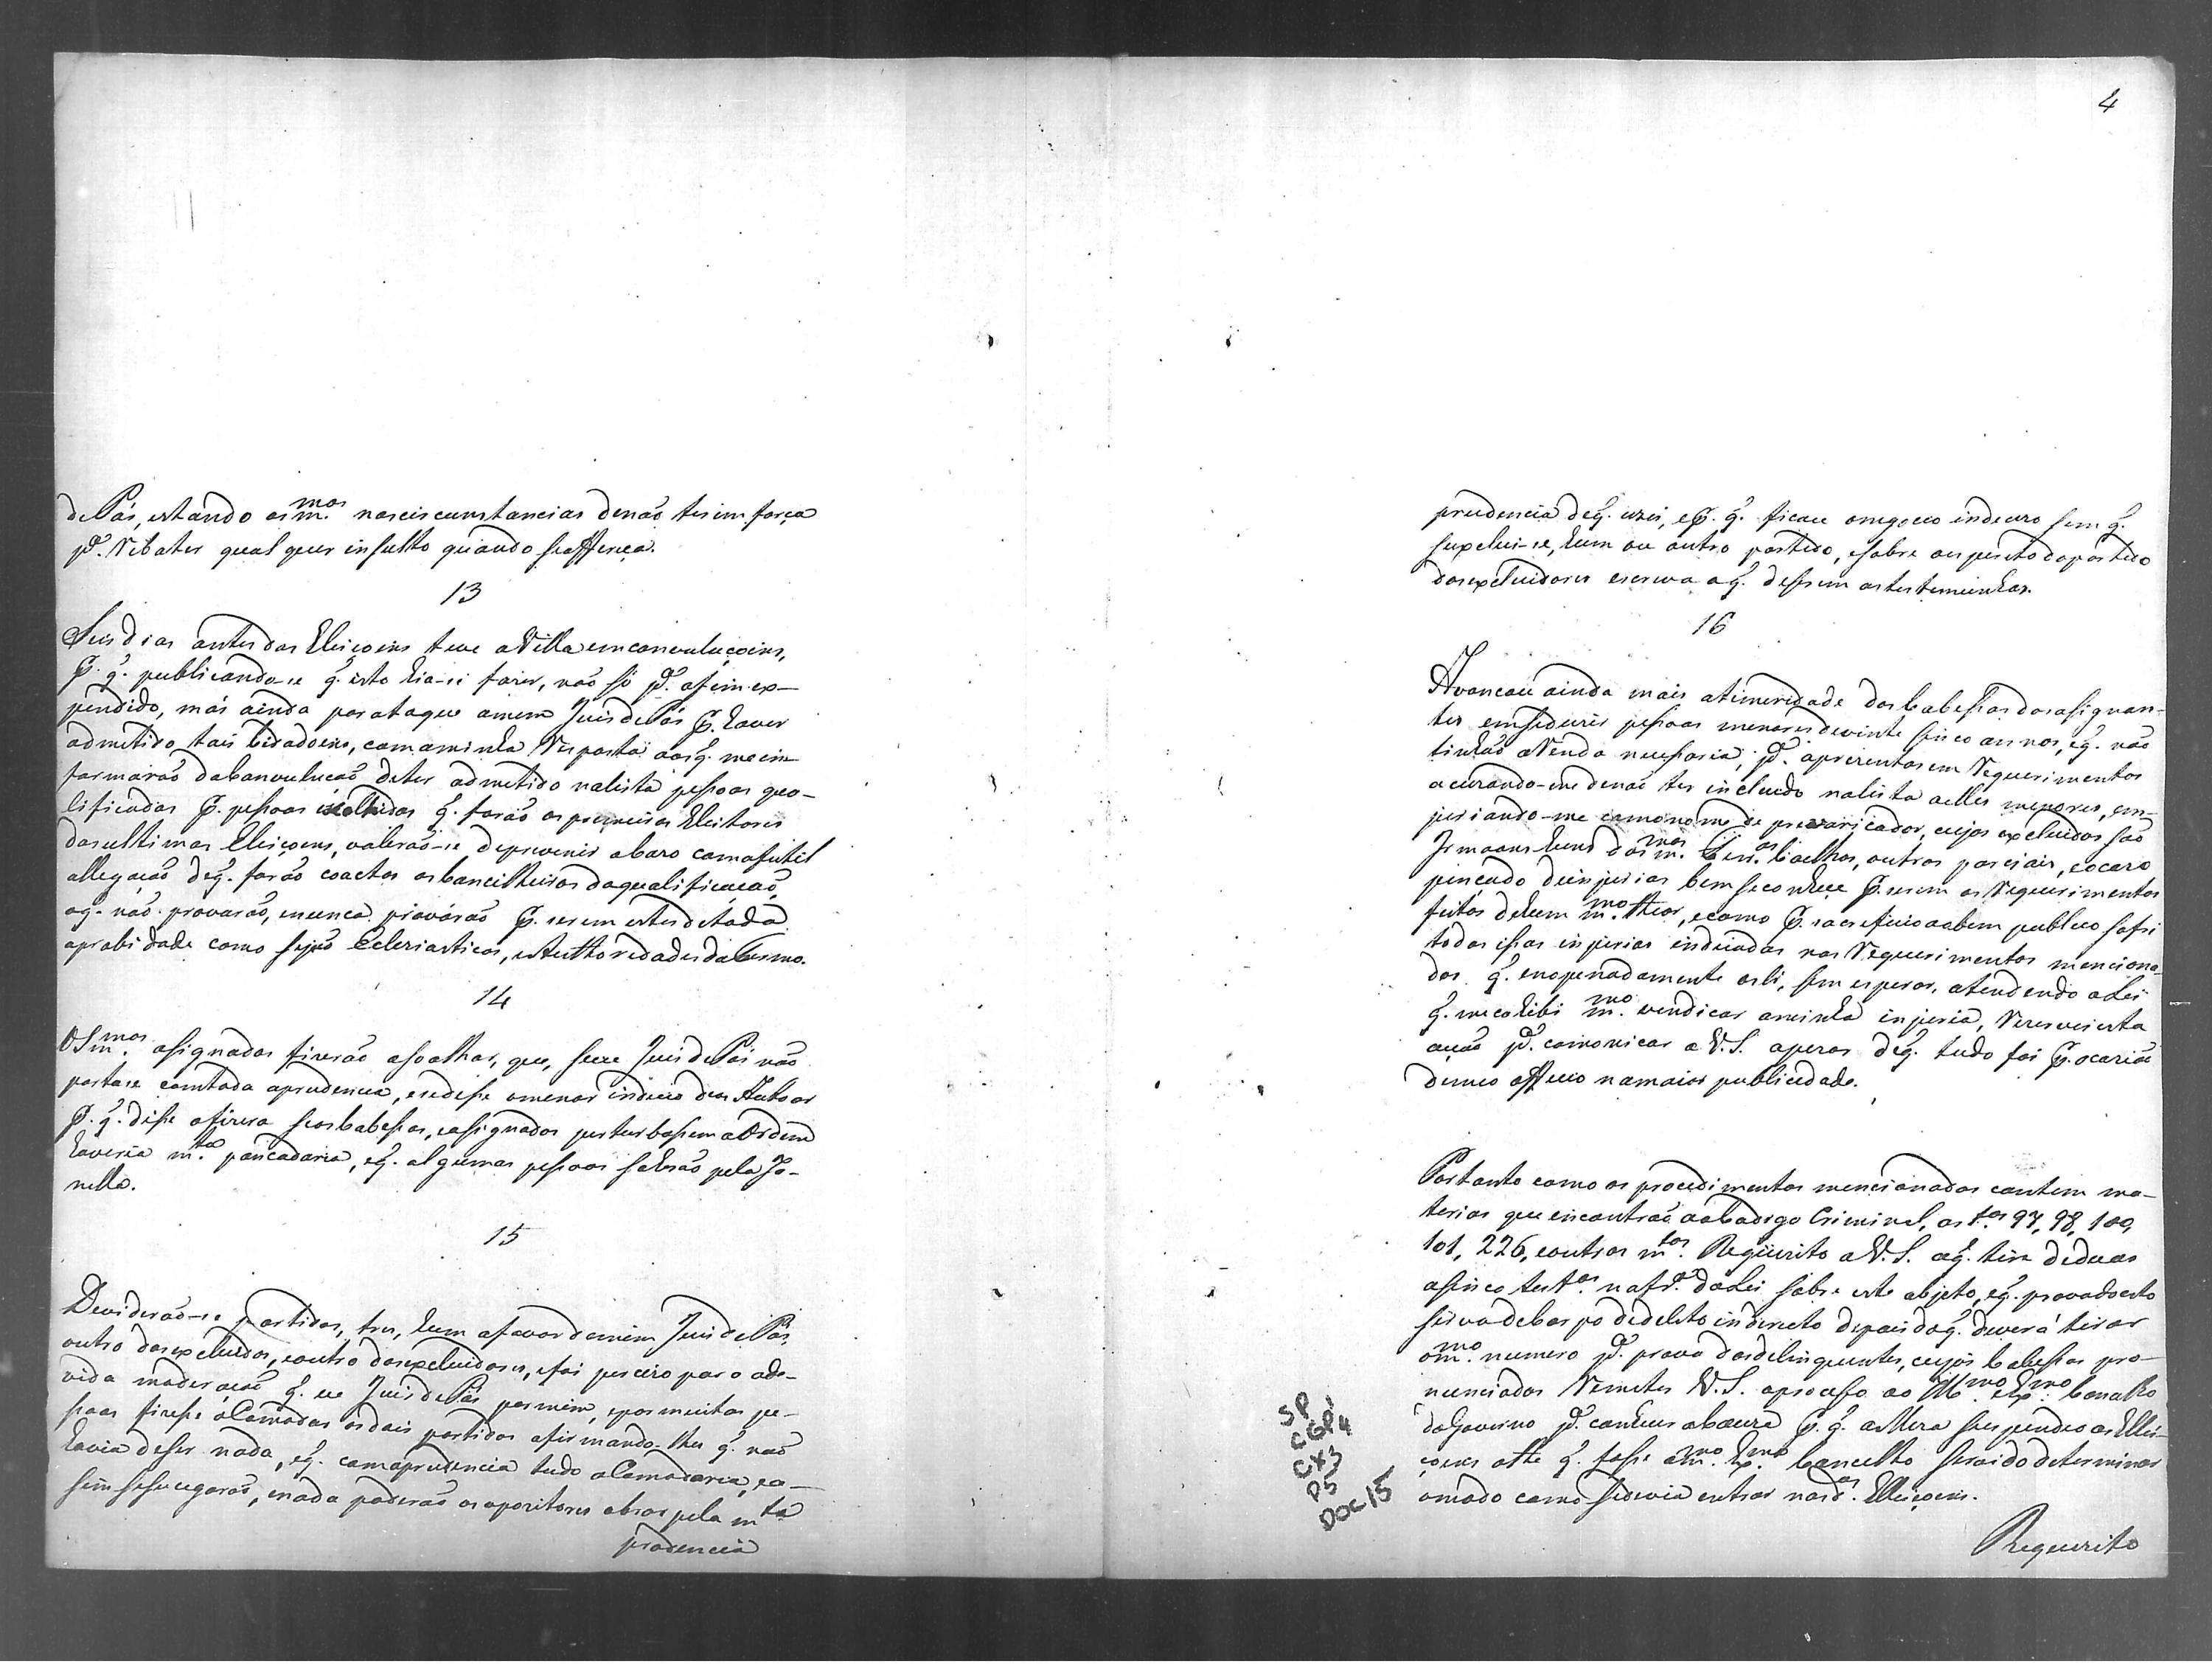 de Pás, estando os m.mos nas circumstancias de naõ terem força
p.a Rebater qual quer insulto quando se offereça.
13
Seis dias antes das Eleiçoens teve a Villa em convuluçoins,
P. q. publicando-se q. isto hia-se fazer, naõ só p.a afim ex-
pendido, más ainda por ataque amim Juis de Pás P. haver
admetido tais Cidadoens, com aminha Resposta aos q. me in
formaraõ da Convuluçaõ de ter admetido na lista pessoas qua-
lificadas P. pessoas escolhidas q. foraõ os primeiros Eleitores
das ultimas Eleiçoens, valeraõ-se de prevenir abaxo com a futil
allegaçaõ de q. foraõ coactos os Concilheiros da qualificaçaõ,
o q. naõ provaraõ, e nunca provaraõ P. serem estes de toda
aprobidade como sejaõ Ecleziasticos, e Authoredades do Termo.
14
Os m.mos asignados fizeraõ asoalhar, que, se eu Juis de Pás não
portase com toda a prudencia, e se desse o menor indicio dos Authos
P. q. disse a fizera se os Cabessas, e asignados perturbassem a Ordem
haveria m.ta pancadaria, e q. algumas pessoas sahiraõ pela Ja-
nella.
15
Deviderão-se partidos, tres, hum a favor de mim Juis de Pás,
outro dos excluidos, e outro dos excluidores, e foi percizo para a de-
vida moderaçaõ q. eu Juis de Pás por mim, e por muitas pe-
ssoas fizesse aComodar os dois partidos afirmando-lhes q. naõ
havia de ser nada, e q. com a prudencia tudo aComodaria, e a-
sim se sucegaraõ, e nada poderaõ os opozitores obrar pela m.ta
prodencia
4
prudencia de q. uzei, e P. q. ficou o negocio indeciso sem q.
supelui-se, hum ou outro partido, e sobre ao perito do partido
dos expeluidores escrevo o q. dessem as testemunhas.
16
Avancou ainda mais a timeridade dos Cabessas dos asignan-
tes em seduzir pessoas menores de vinte sinco annos, e q. naõ
tinhaõ a Renda necessaria, p.a aprezentarem Requerimentos
acuzando-me de naõ ter incluido na lista aelles menores, em-
juriando-me com o nome de prevaricador, cujos excluidos saõ
Irmaons huns dos m.mos outros parciais, e o caro
pençado de injurias bem se conhece P. serem os Requerimentos
feitos de hum m.mo theor, e como P. sacreficio ao bem publico sofri
todas essas injurias induzidas nos Requerimentos menciona-
dos q. enopenadamente os li, sem esperar, atendendo a Lei
q. me cohibi m.mo vendicar a minha injuria, Rezervei esta
acaõ p.a comonicar a V. S. apezar de q. tudo foi P. ocaziaõ
de meo officio na maior publicidade.
Portanto como os procedimentos mencionados contem ma-
terias que encontraõ ao Codigo Criminal, os 97, 98, 100,
101, 226, e outros m.tos Requeirito a V. S. a q. tire de duas
a sinco test.as na fr.a da Lei sobre este objeto, e q. provado esto
sirva de Corpo de delito indereto depois do q. deverá tirar
o m.mo numero p.a prova dos delinquentes, cujos Cabessas pro-
nunciados Remeter V. S. aprocesso ao Ill.mo e Ex.mo Conselho
do Governo p.a conhecer a cauza P. q. a Meza suspendeo as Elei-
çoens athe q. fosse am.mo Ex.mo Concelho servido determinar
o modo como se devia entrar nas d.as Elleiçoens.
Requeirito
SP
CGP1
CX3
P5
DOC15